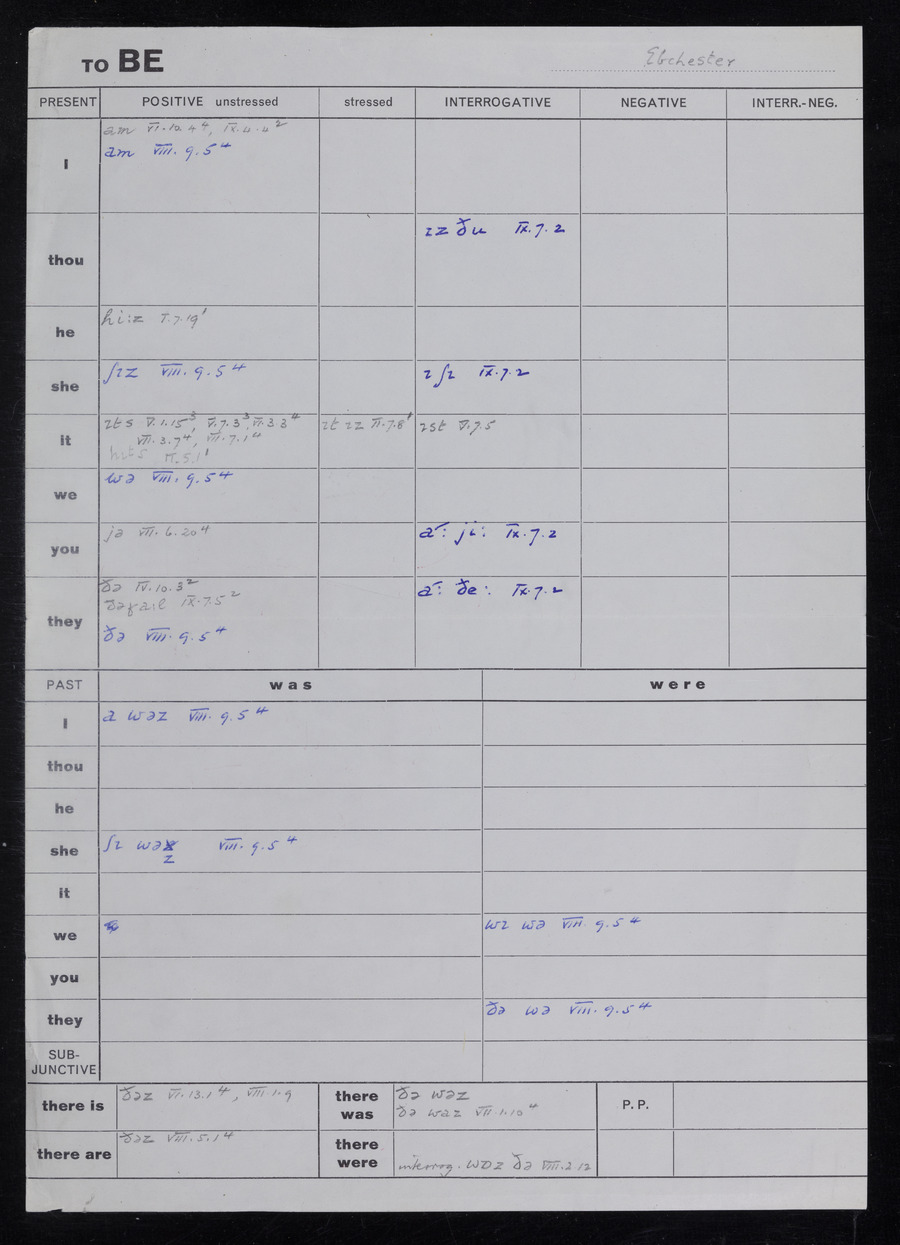 TO BE Ebchester
PRESENT POSITIVE unstressed stressed INTERROGATIVE NEGATIVE INTERR.-NEG.
am VI.12.4⁴, IX.4.4²
I am VIII.9.5⁴
thou ɪz ðu IX.7.2
he hi:z V.7.19¹
she ʃɪz VIII.9.5⁴ ɪ ʃɪ IX.7.2
ɪts V.1.15³, V.7.3³, VI.3.3⁴ ɪt ɪz II.7.8¹ ɪst V.7.5
it VII.3.7⁴, VII.7.1⁴
hɪts
we wə VIII.9.5⁴
you jə VII.6.20⁴ a: ji: IX.7.2
ðə IV.10.3² a: ðe: IX.7.2
IX.7.5²
they
ðə VIII.9.5⁴
PAST was were
I a wəz VIII.9.5⁴
thou
he
she ʃɪ wəz VIII.9.5⁴
it
we wɪ wə VIII.9.5⁴
you
they ðə wə VIII.9.5⁴
SUB-
JUNCTIVE
there is ðəz VI.13.1⁴, VIII.1.9 there was ðə wəz P.P.
ðə waz VII.1.10⁴
there are ðəz VIII.5.1⁴ there were
interrog. wɒz ðə VIII.2.12